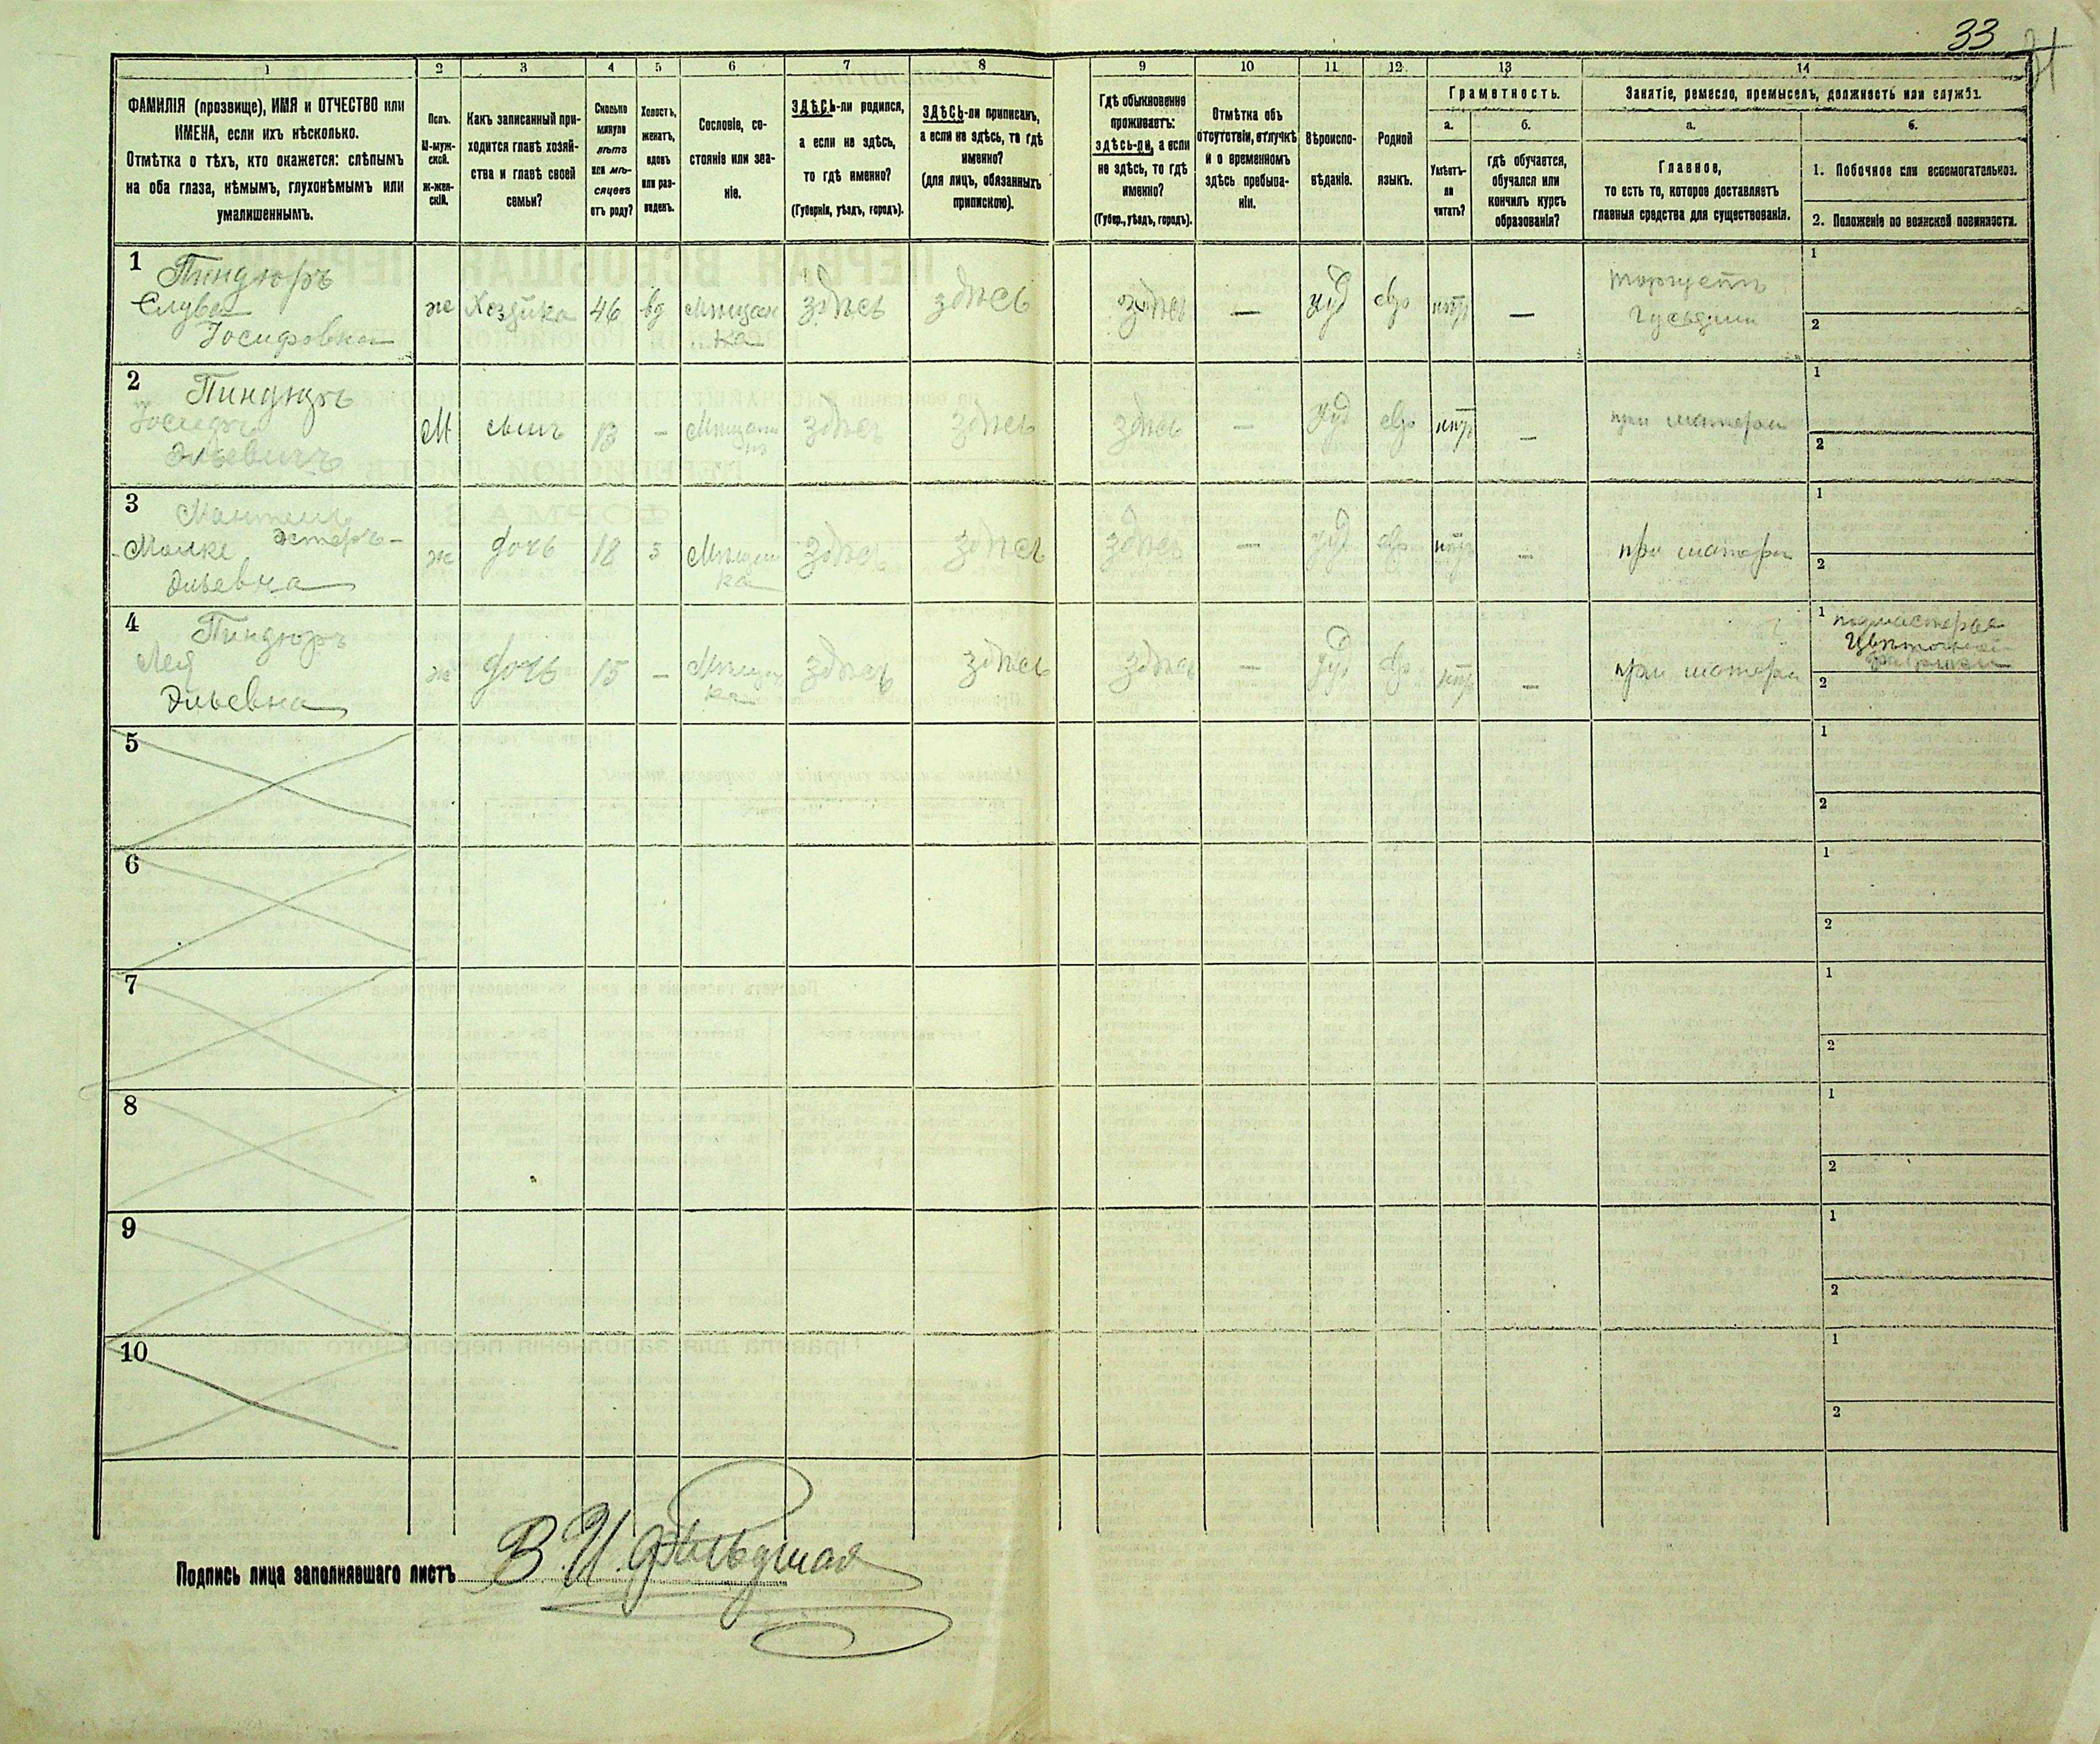 33
1
2
3
4
5
6
7
8
9
10
11
12
13
14
ФАМИЛІЯ (прозвище), ИМЯ и ОТЧЕСТВО или
ИМЕНА, если ихъ нѣсколько.
Отмѣтка о тѣхъ, кто окажется: слѣпымъ
на оба глаза, нѣмымъ, глухонѣмымъ или
умалишеннымъ.
Полъ.
М-муж-
ской.
ж-жен-
скій.
Какъ записанный при-
ходится главѣ хозяй-
ства и главѣ своей
семьи?
Сколько
минуло
лѣтъ
или мѣ-
сяцевъ
отъ роду?
Холостъ,
женатъ,
вдовъ
или раз-
веденъ.
Сословіе, со-
стояніе или зва-
ніе.
ЗДѢСЬ-ли родился,
а если не здѣсь,
то гдѣ именно?
(Губернія, уѣздъ, городъ).
ЗДѢСЬ-ли приписанъ,
а если не здѣсь, то гдѣ
именно?
(для лицъ, обязанныхъ
припискою).
Гдѣ обыкновенно
проживаетъ:
здѣсь-ли, а если
не здѣсь, то гдѣ
именно?
(Губер., уѣздъ, городъ).
Отмѣтка объ
отсутствіи, отлучкѣ
и о временномъ
здѣсь пребыва-
ніи.
Вѣроиспо-
вѣданіе.
Родной
языкъ.
Грамотность.
а.
Умѣетъ-
ли
читать?
б.
гдѣ обучается,
обучался или
кончилъ курсъ
образованія?
Занятіе, ремесло, промыселъ, должность или служба.
а.
Главное,
то есть то, которое доставляетъ
главныя средства для существованія.
б.
1. Побочное или вспомогательное.
2. Положеніе по воинской повинности.
1 Пиндюръ
Слува
Іосифовна
же Хозяйка 46 вд Мѣщан
ка
здѣсь здѣсь здѣсь — іуд евр нѣтъ —
торгуетъ
1
2
2 Пиндюръ
Іосифъ
Эльевичъ
М сынъ 13 — Мѣщани
нъ
здѣсь здѣсь здѣсь — іуд евр нѣтъ — при матери
1
2
3
Малке Эстеръ-
Эльевна
ж дочь 18 з Мѣщан
ка
здѣсь здѣсь здѣсь — іуд евр нѣтъ — при матери
1
2
4 Пиндюръ
Лея
Эльевна
ж дочь 15 — Мѣщан
ка
здѣсь здѣсь здѣсь — іуд евр нѣтъ — при матери
1 подмастерье
Цвѣточной
фабрики
2
5
1
2
6
1
2
7
1
2
8
1
2
9
1
2
10
1
2
Подпись лица заполнявшаго листъ В. И.